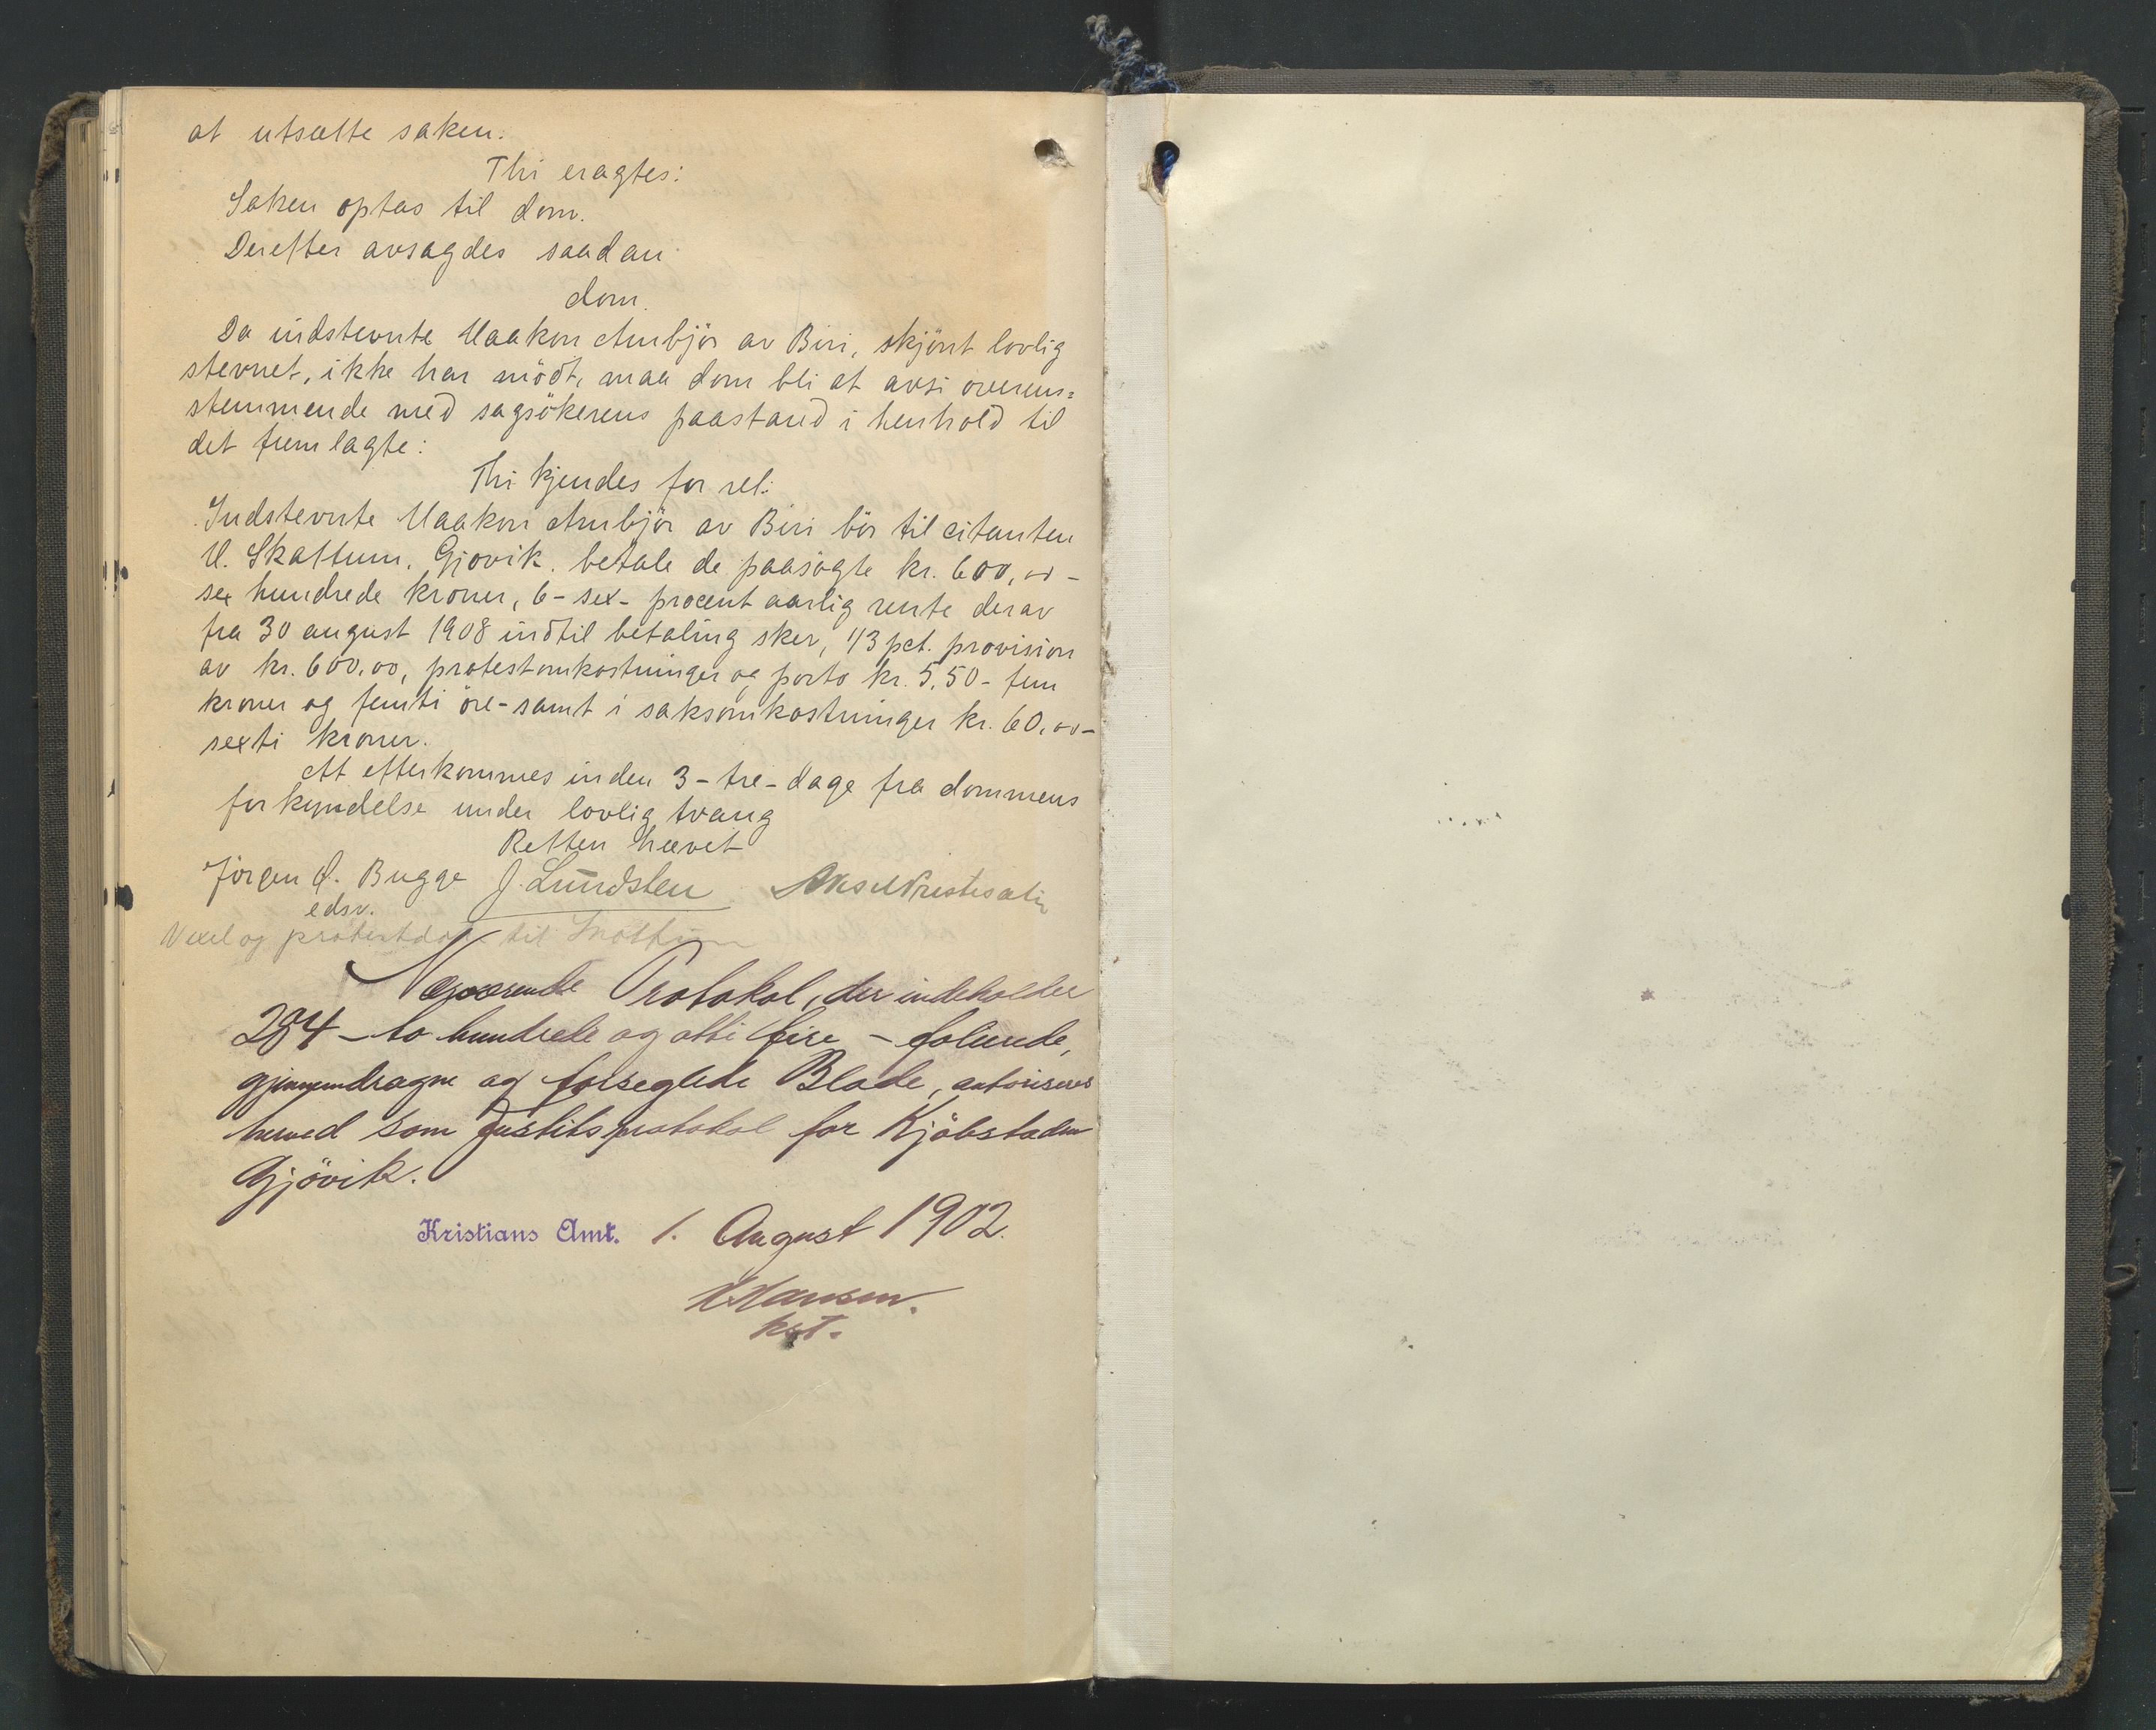 at utsætte saken.
Thi eragtes:
Saken optas til dom.
Derefter avsagdes saadan
dom.
Da indstevnte Haakon Arnbjør av Biri, skjönt lovlig
stevnet, ikke har mödt, maa dom bli at avsi overens=
stemmende med sagsökerens paastand i henhold til
det fremlagte:
Thi kjendes for ret:
Indstevnte Haakon Arnbjör av Biri bör til citanten
H. Skattum, Gjøvik, betale de paasögte kr. 600,00 -
sex hundrede kroner, 6 - sex - procent aarlig rente derav
fra 30 august 1908 indtil betaling sker, 1/3 pct. provision
av kr. 600,00, protestomkostninger og porto kr. 5,50 - fem
kroner og femti öre - samt i saksomkostninger kr. 60,00 -
sexti kroner.
At efterkommes inden 3 - tre - dage fra dommens
forkyndelse under lovlig tvang
Retten hævet
Jörgen Bugge J. Lundsten Aksel
edsv.
Vexel og protest til
Nærværende Protokol, der indeholder
284 - to hundrede og otti fire - folierede,
gjennemdragne og forseglede Blade, autoriseres
herved som Justitsprotokol for Kjöbstaden
Gjövik.
Kristians Amt. 1. August 1902.
Hansen.
kst.